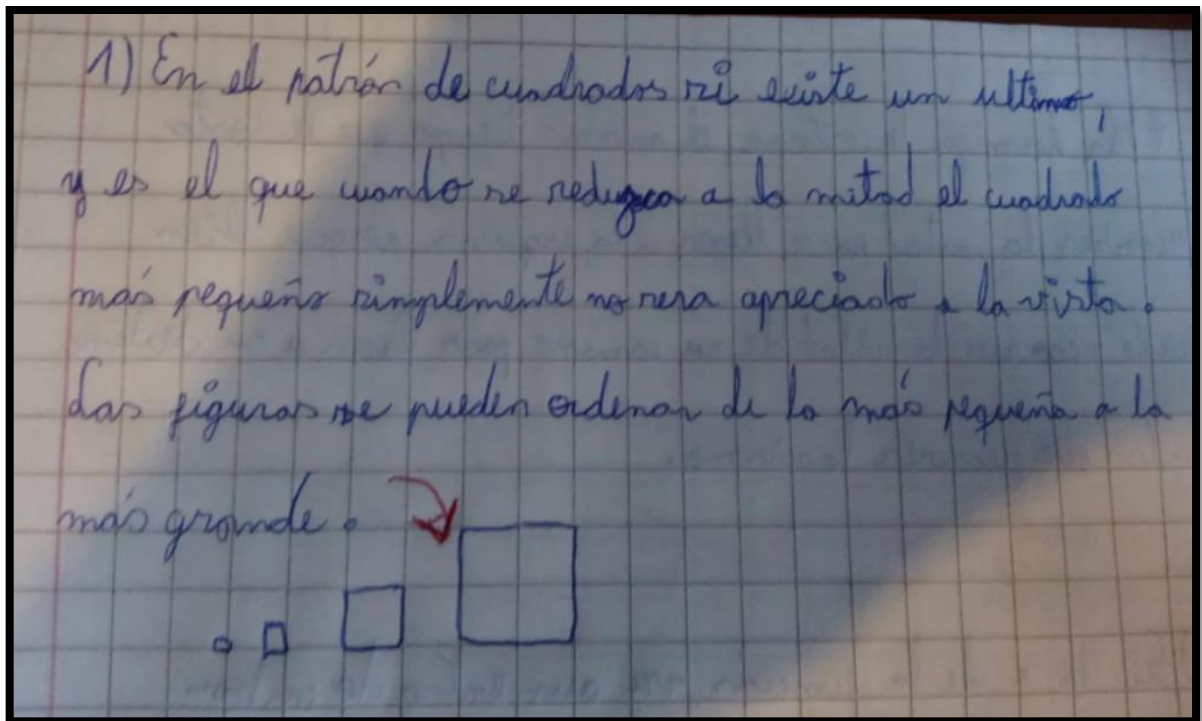 1) En el patrón de cuadrados si existe un ultimo,
y es el que cuando se reduzca a la mitad el cuadrado
más pequeño simplemente no sera apreciado a la vista.
Las figuras se pueden ordenar de la más pequeña a la
más grande.